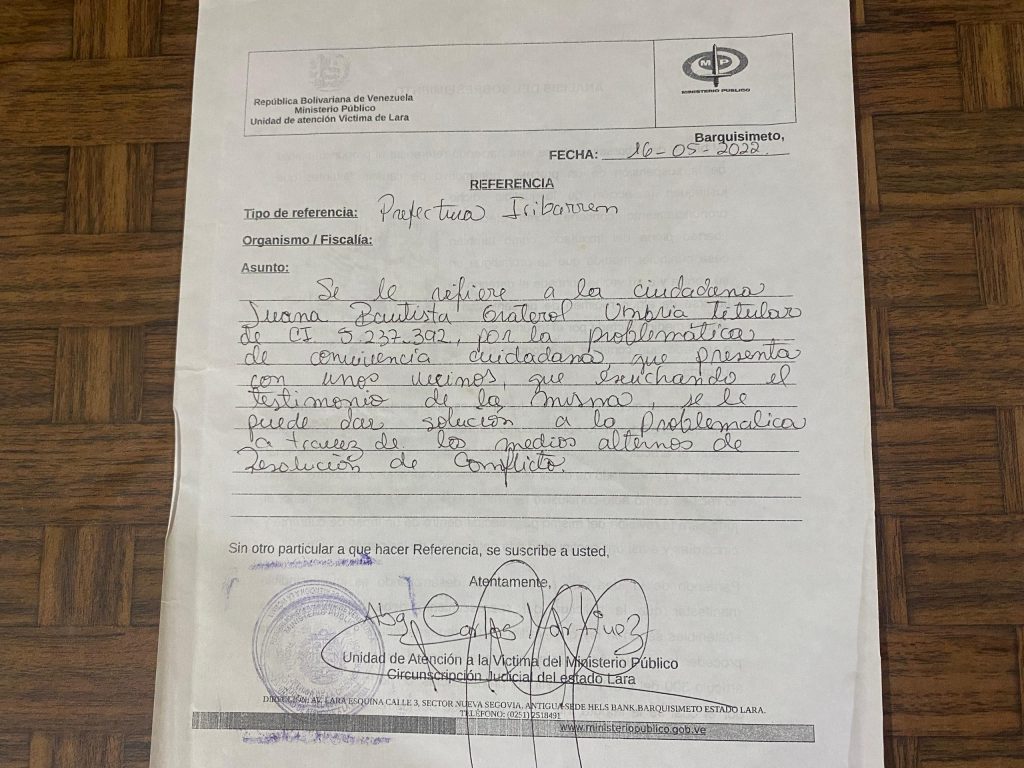 República Bolivariana de Venezuela
Ministerio Público
Unidad de atención Victima de Lara
MP
MINISTERIO PUBLICO
Barquisimeto,
FECHA: 16-05-2022
REFERENCIA
Tipo de referencia: Prefectura Iribarren
Organismo / Fiscalía:
Asunto:
Se le refiere a la ciudadana
Juana Bautista Graterol Umbria titular
de CI 5.237.392, por la problemática
de convivencia cuidadana que presenta
con unos vecinos, que escuchando el
testimonio de la misma, se le
puede dar solución a la Problematica
a travez de los medios alternos de
Resolución de Conflicto.
Sin otro particular a que hacer Referencia, se suscribe a usted,
Atentamente,
Abg Carlos Martínez
Unidad de Atención a la Victima del Ministerio Público
Circunscripción Judicial del estado Lara
DIRECCIÓN: AV. LARA ESQUINA CALLE 3, SECTOR NUEVA SEGOVIA, ANTIGUA SEDE HELS BANK.BARQUISIMETO ESTADO LARA.
TELÉFONO: (0251) 2518491
www.ministeriopublico.gob.ve